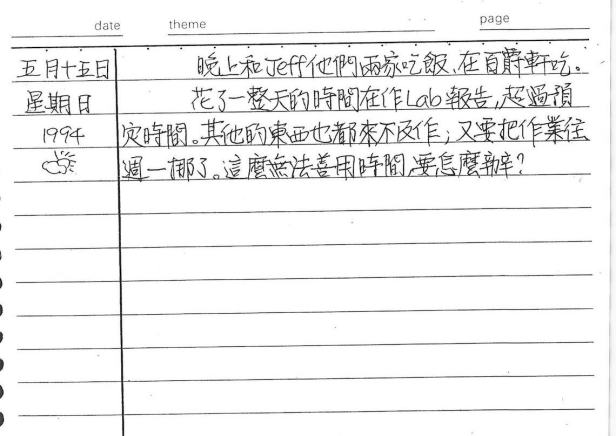 date theme page
五月十五日 晚上和Jeff他們兩家吃飯,在百爵軒吃。
星期日 花了一整天的時間在作Lab報告,超過預
1994 定時間。其他的東西也都來不及作;又要把作業往
週一挪了。這麼無法善用時間,要怎麼辦?